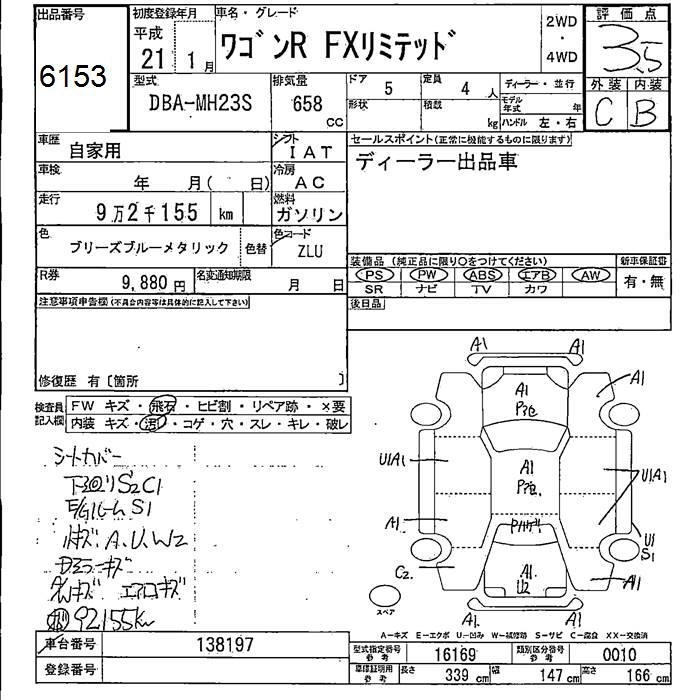 出品番号 6153
初度登録年月 平成 21 1月
車名・グレード ワゴンR FXリミテッド
2WD・4WD
評価点 3.5
型式 DBA-MH23S
排気量 658 CC
ドア 5
形状
定員 4 人
積載 kg
ディーラー・並行
モデル年式 年
ハンドル 左・右
外装 C
内装 B
車歴 自家用
シフト IAT
車検 年 月( 日)
冷房 AC
走行 9万2千155 km
燃料 ガソリン
色 ブリーズブルーメタリック 色替
色コード ZLU
R券 9,880 円
名変通知期限 月 日
セールスポイント(正常に機能するものに限ります)
ディーラー出品車
装備品 (純正品に限り○をつけてください)
新車保証書
PS PW ABS エアB AW
SR ナビ TV カワ
有・無
後日品
注意事項申告欄(不具合内容等は具体的に記入して下さい)
修復歴 有〔箇所 〕
検査員記入欄
FW キズ・飛石・ヒビ割・リペア跡・×要
内装 キズ・汚・コゲ・穴・スレ・キレ・破レ
シートカバー
下回りS2C1
E/Gルーム S1
A.U.W2
エアロキズ
92155km
A1 A1
A1
A1
U1A1
A1
U1A1
A1
U1
S1
C2.
A1
U2
A1
A1. A1
スペア
A-キズ E-エクボ U-凹み W-補修跡 S-サビ C-腐食 XX-交換済
車台番号 138197
登録番号
型式指定番号 参考 16169
類別区分番号 参考 0010
車体証明用 参考 長さ 339 cm 幅 147 cm 高さ 166 cm